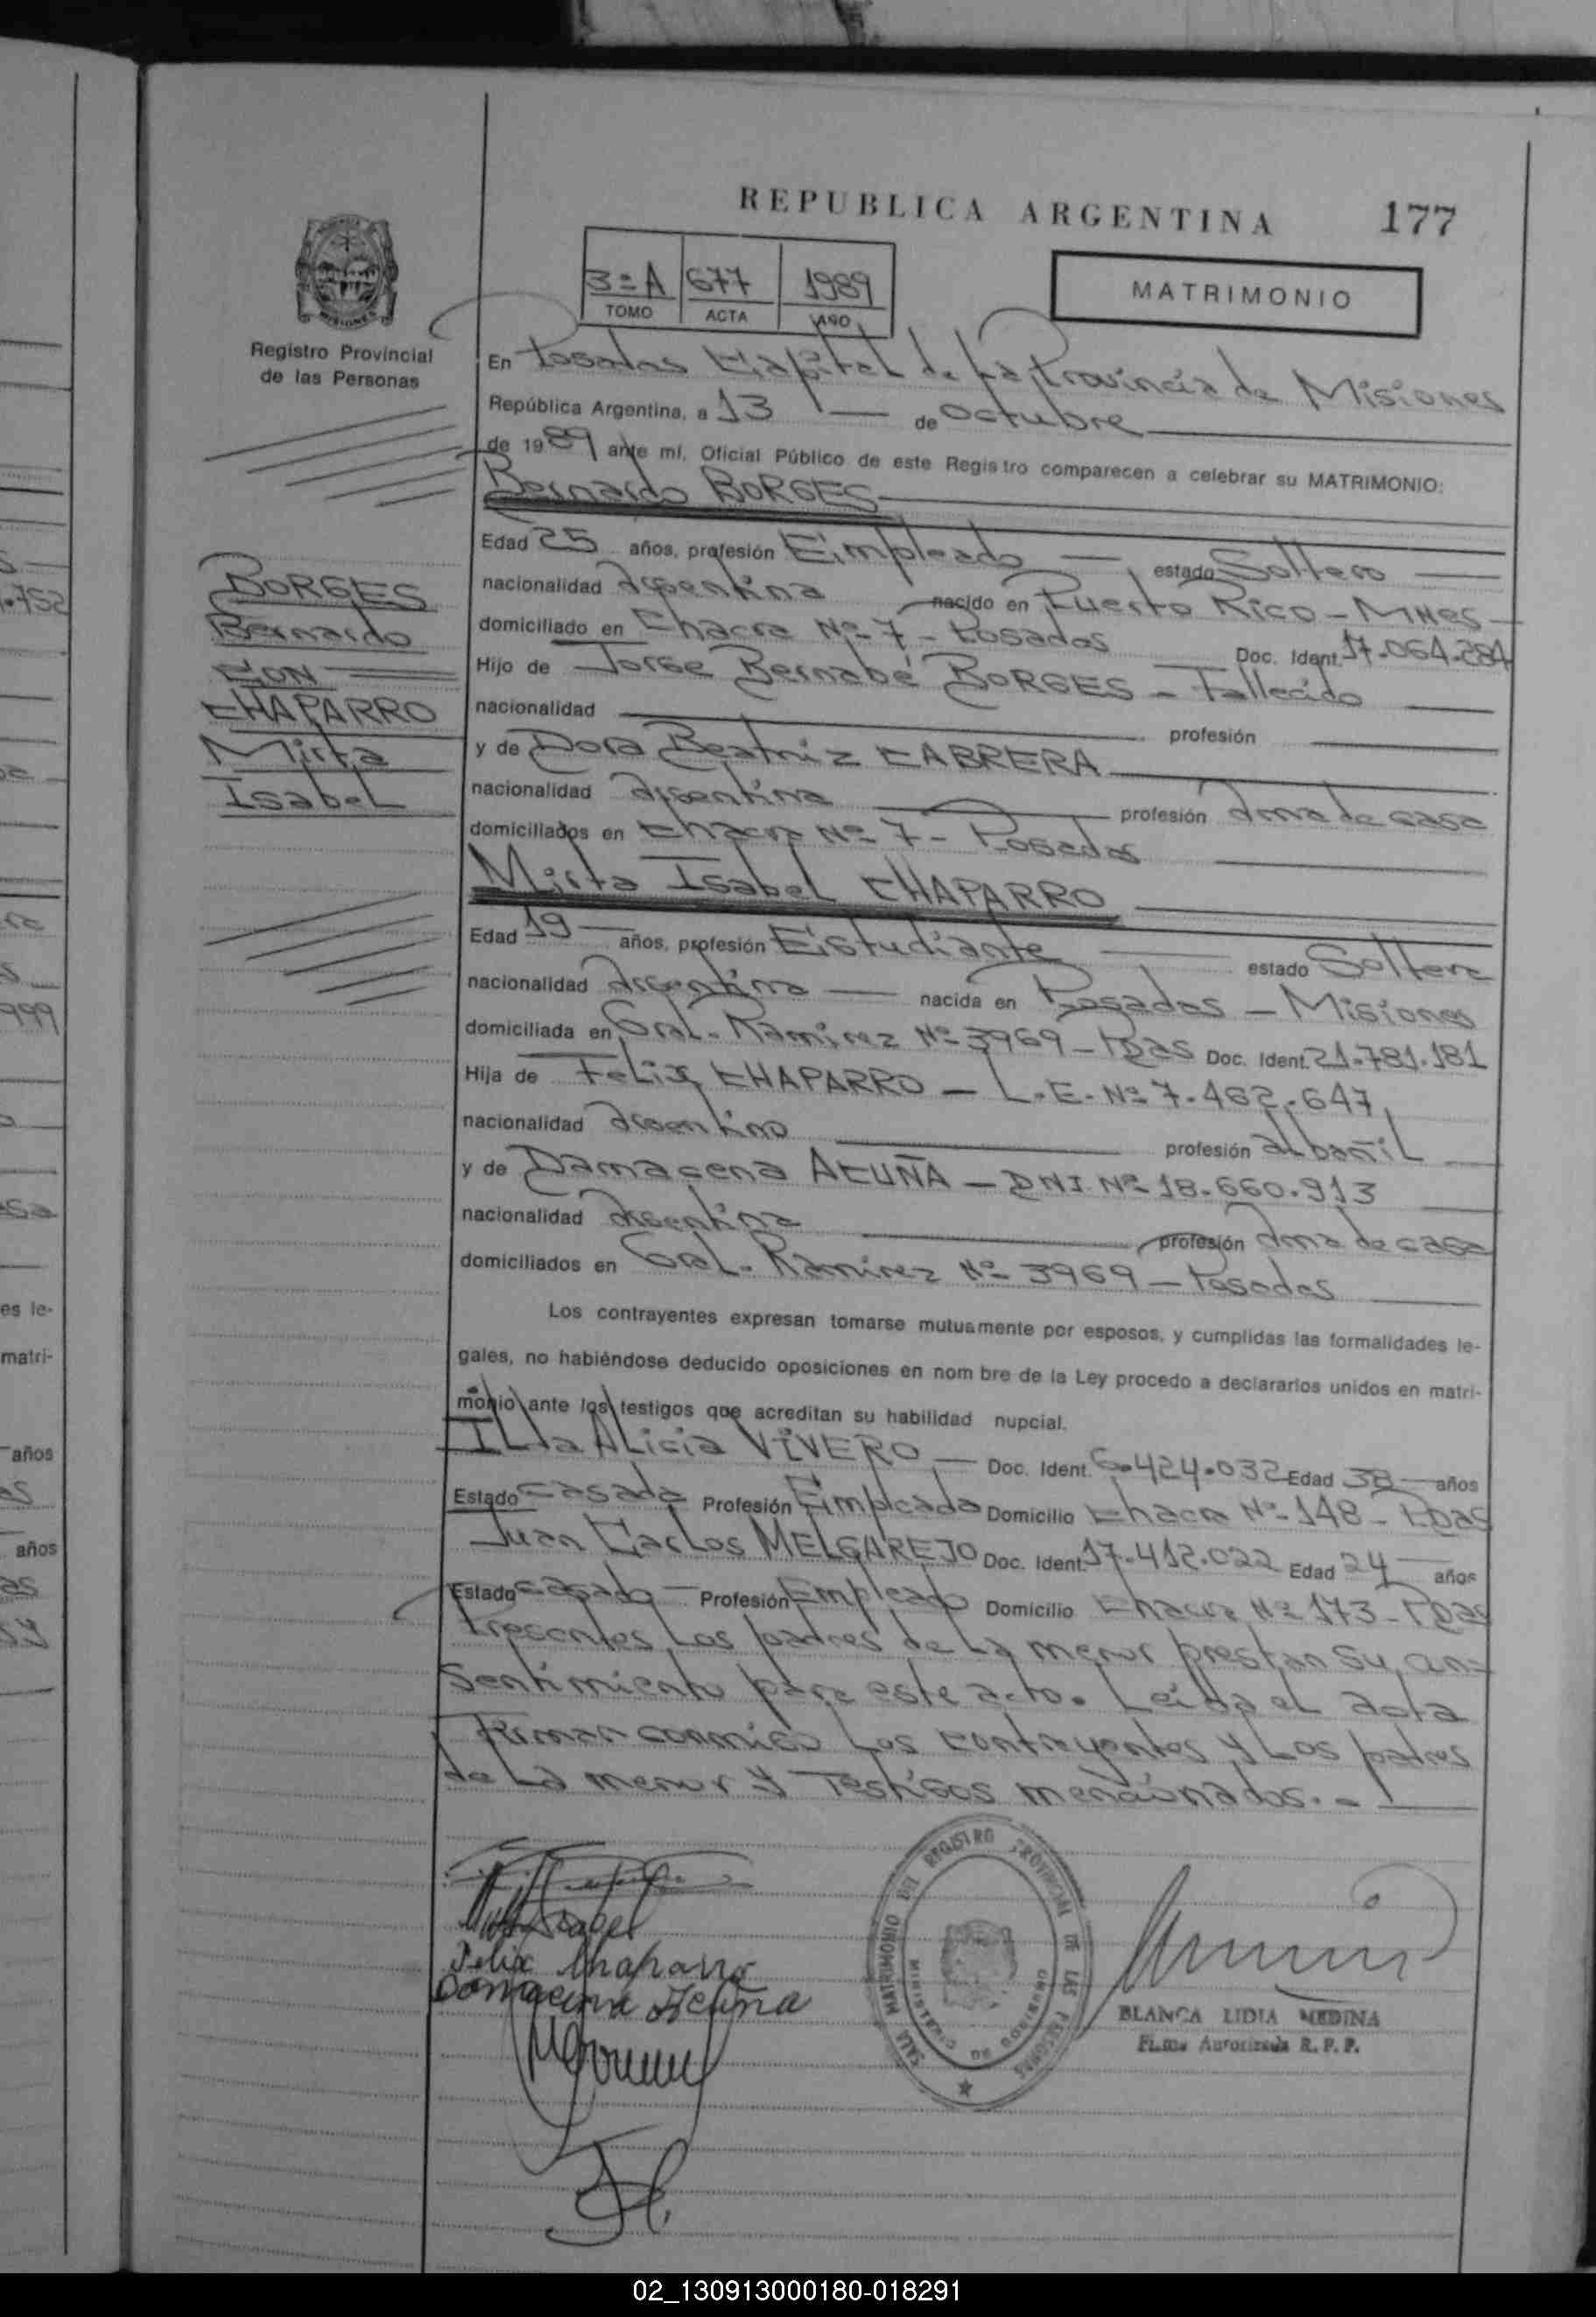 REPUBLICA ARGENTINA 177
3=A 677 1989
TOMO ACTA AÑO
MATRIMONIO
MISIONES
Registro Provincial
de las Personas
En Posadas Capital de La Provincia de Misiones
República Argentina, a 13 — de Octubre
de 1989 ante mí, Oficial Público de este Registro comparecen a celebrar su MATRIMONIO:
Bernardo BORGES
Edad 25 años, profesión Empleado — estado Soltero —
nacionalidad Argentina nacido en Puerto Rico - Mnes -
domiciliado en Chacra Nº 7 - Posadas Doc. Ident. 17.064.284
Hijo de Jorge Bernabé BORGES - Fallecido
nacionalidad — profesión —
y de Dora Beatriz CABRERA
nacionalidad Argentina — profesión Ama de casa
domiciliados en Chacra Nº 7 - Posadas
BORGES
Bernardo
CON
CHAPARRO
Mirta
Isabel
Mirta Isabel CHAPARRO
Edad 19 — años, profesión Estudiante — estado Soltera
nacionalidad Argentina — nacida en Posadas - Misiones
domiciliada en Gral. Ramirez Nº 3969 - Pdas Doc. Ident. 21.781.181
Hija de Felix CHAPARRO - L.E. Nº 7.462.647
nacionalidad Argentino — profesión albañil
y de Damacena ACUÑA - DNI Nº 18.660.913
nacionalidad Argentina — profesión Ama de casa
domiciliados en Gral. Ramirez Nº 3969 - Posadas
Los contrayentes expresan tomarse mutuamente por esposos, y cumplidas las formalidades le-
gales, no habiéndose deducido oposiciones en nom bre de la Ley procedo a declararlos unidos en matri-
monio ante los testigos que acreditan su habilidad nupcial.
ILda ALicia VIVERO — Doc. Ident. 6.424.032 Edad 38 — años
Estado Casada Profesión Empleada Domicilio Chacra Nº 148 - Pdas
Juan Carlos MELGAREJO Doc. Ident. 17.412.022 Edad 24 — años
Estado Casado — Profesión Empleado Domicilio Chacra Nº 173 - Pdas
Presentes Los padres de La menor prestan su con=
sentimiento para este acto. Leida el acta
Firman conmigo Los contrayentes y Los padres
de La menor y Testigos mencionados. -
Mirta Isabel
Felix Chaparro
Damacena Acuña
SALA MATRIMONIO DEL REGISTRO PROVINCIAL DE LAS PERSONAS
MINISTERIO DE GOBIERNO
BLANCA LIDIA MEDINA
Firma Autorizada R. P. P.
es le-
matri-
años
años
02_130913000180-018291